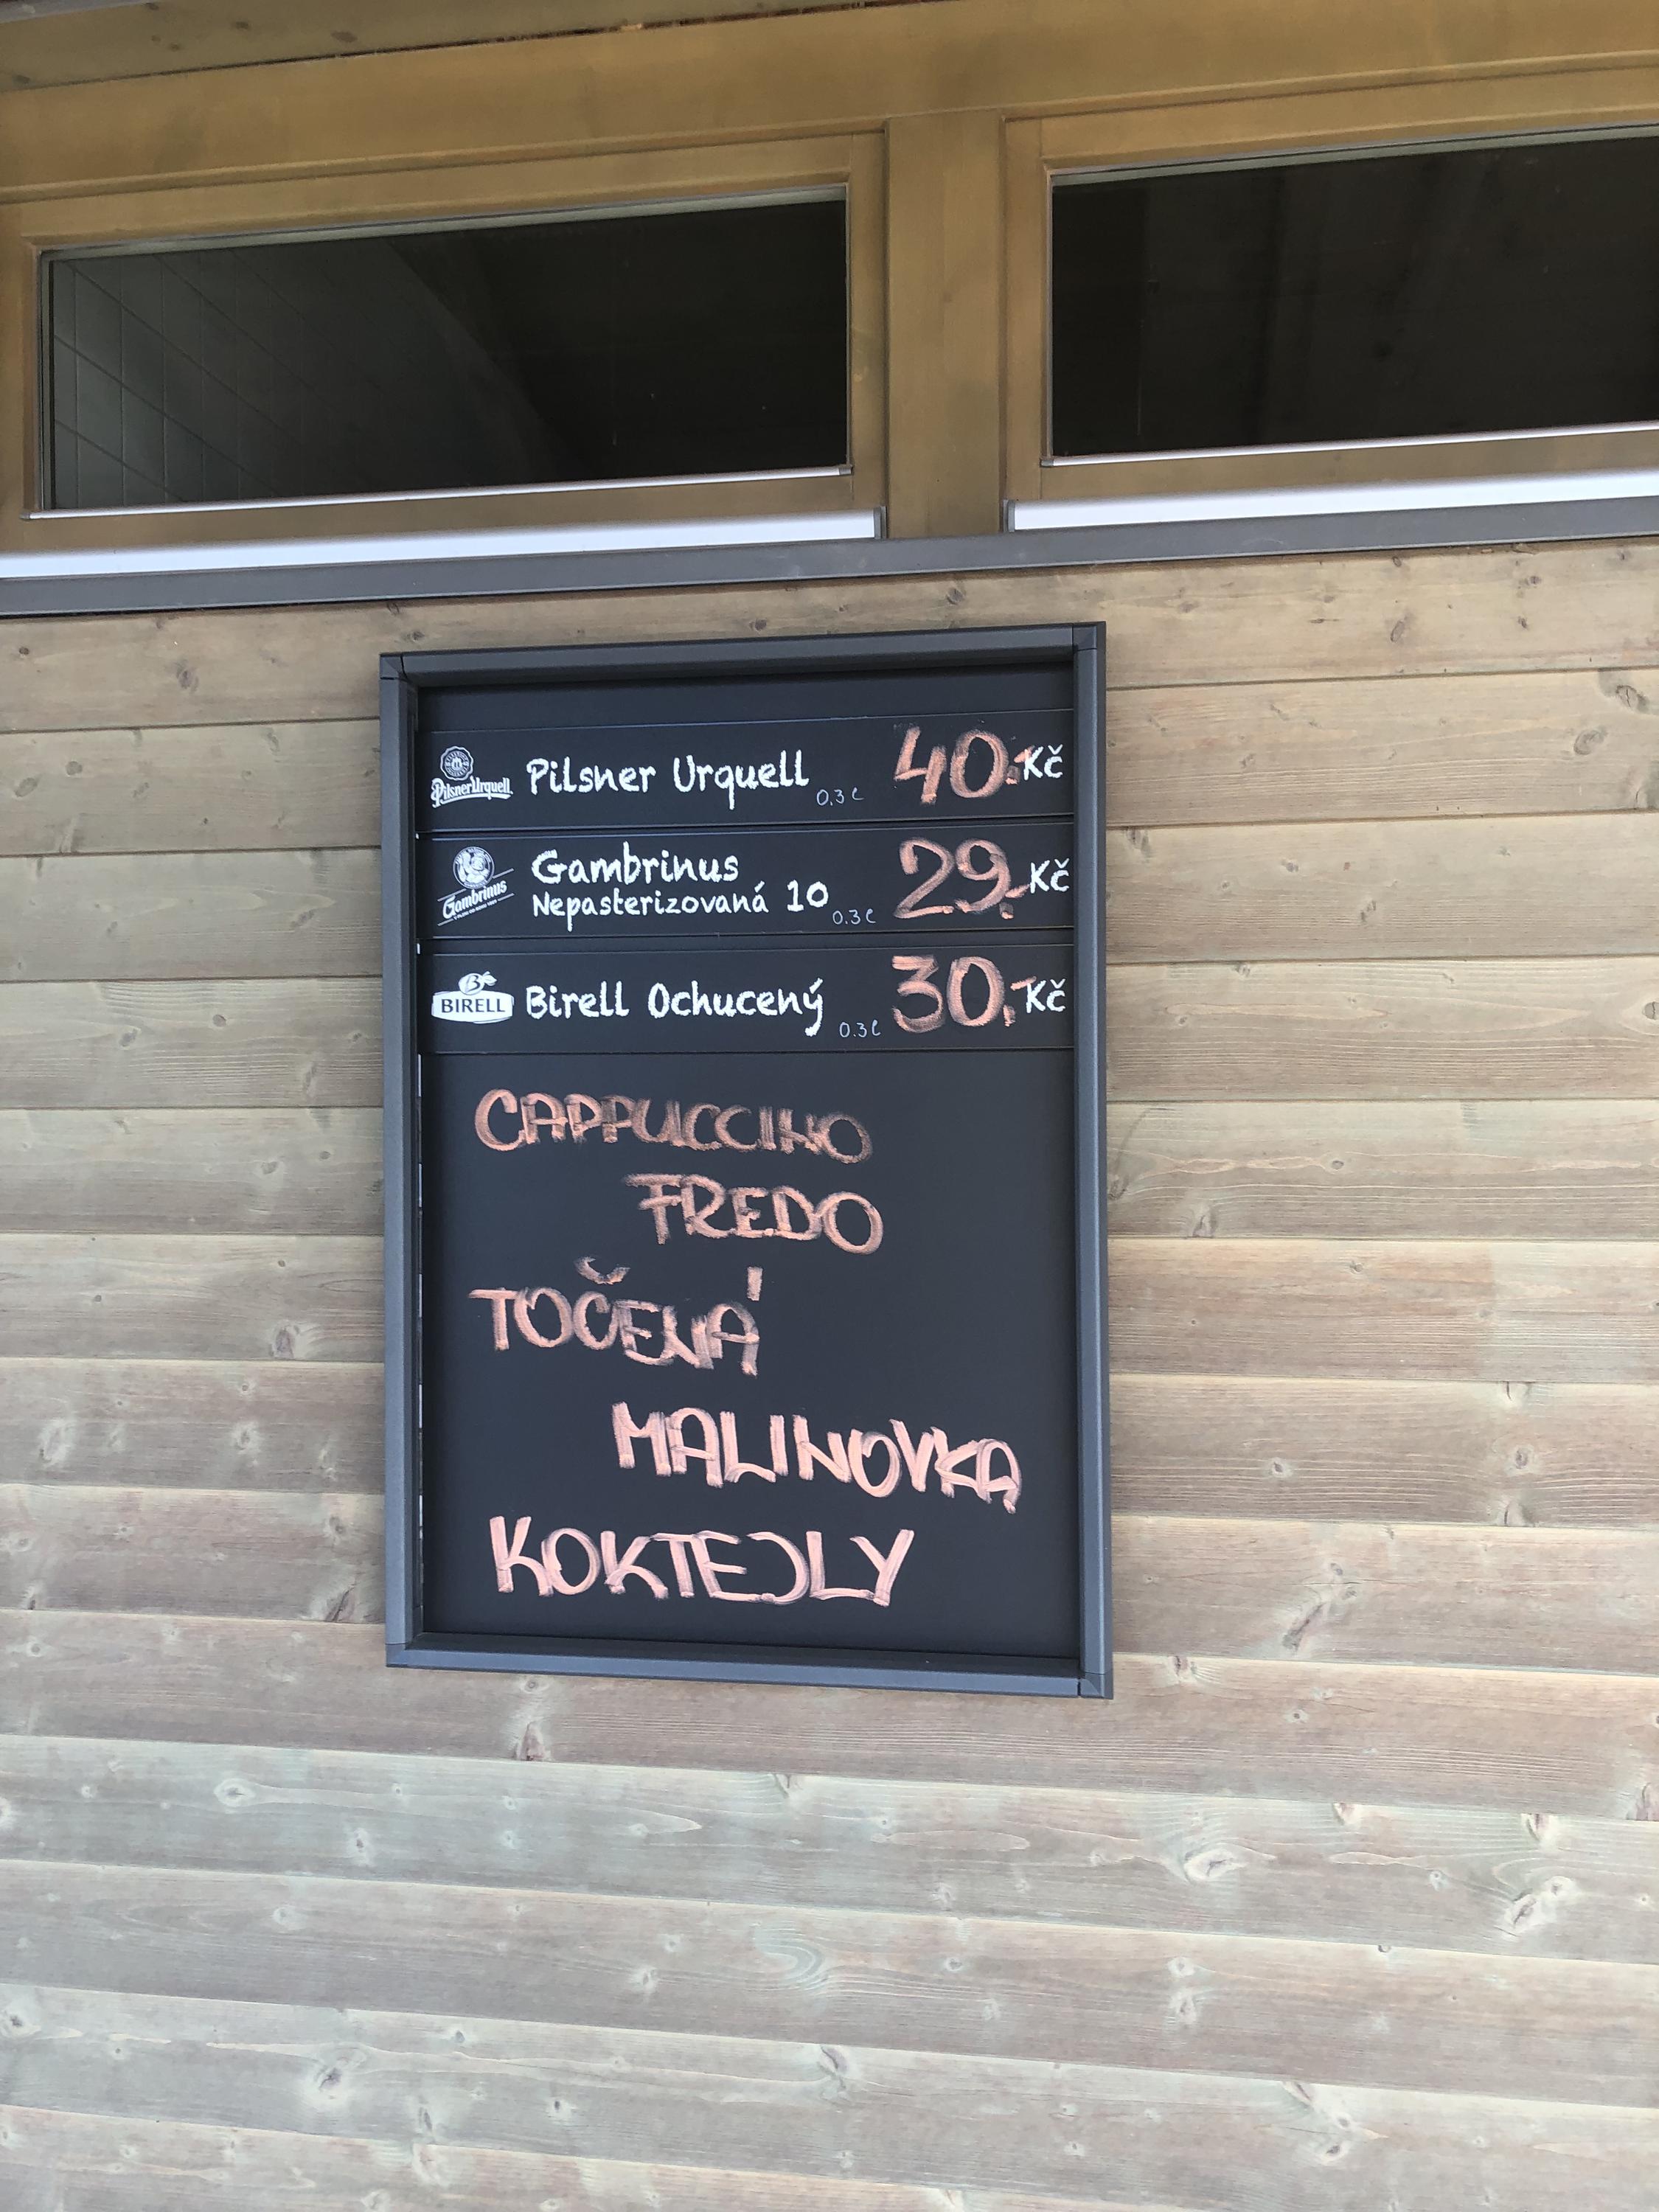 Pilsner Urquell Pilsner Urquell 0.3ℓ 40.-Kč
Gambrinus Gambrinus
Nepasterizovaná 10 0.3ℓ 29.-Kč
BIRELL Birell Ochucený 0.3ℓ 30.-Kč
CAPPUCCINO
FREDO
TOČENÁ
MALINOVKA
KOKTEJLY